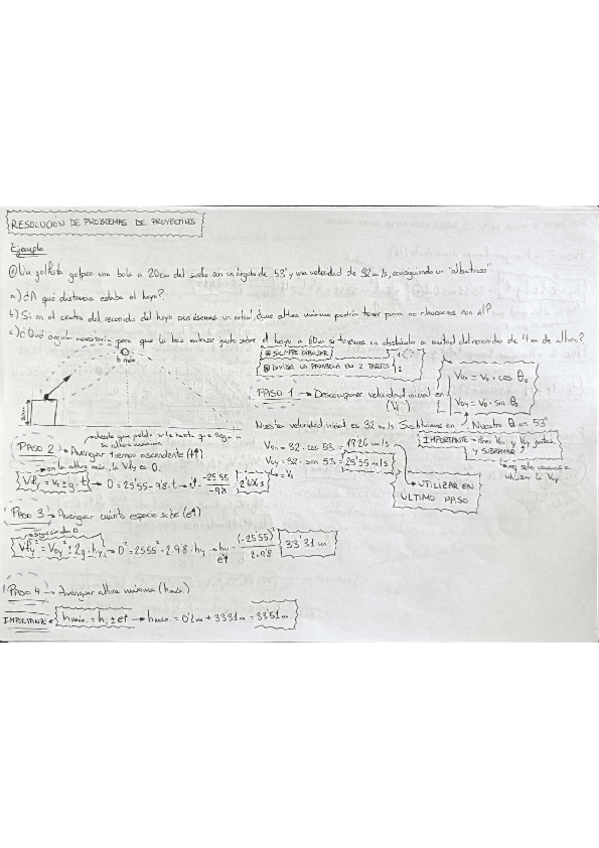 RESOLUCIÓN DE PROBLEMAS DE PROYECTILES
Ejemplo
① Un golfista golpea una bola a 20cm del suelo con un ángulo de 53° y una velocidad de 32 m/s, consiguiendo un "albatross"
a) ¿A qué distancia estaba el hoyo?
b) Si en el centro del recorrido del hoyo pusiésemos un árbol, ¿que altura máxima podría tener para no chocarnos con él?
c) ¿Qué ángulo necesitaría para que la bola entrase justo sobre el hoyo a 60m si tuviésemos un obstáculo a mitad del recorrido de 4m de altura?
SIEMPRE DIBUJAR
DIVIDIR LA PARÁBOLA EN 2 PARTES
1
2
h máx
PASO 1 → Descomponer velocidad inicial en
(Vi)
V0x = V0 · cos θ0
V0y = V0 · sen θ0
Nuestra velocidad inicial es 32 m/s Nuestro θ es 53°
V0x = 32 · cos 53 = 19'26 m/s
V0y = 32 · sen 53 = 25'55 m/s
IMPORTANTE → Poner V0x y V0y juntas
Y SUBRAYAR
UTILIZAR EN
ÚLTIMO PASO
desde que
su altura máxima
PASO 2 → Averiguar tiempo ascendente (t↑)
en la altura máx, la Vfy es 0.
Vfy = V0 ± g · t → 0 = 25'55 - 9'8 · t → t = -25'55 / -9'8 = 2'606 s
PASO 3 → Averiguar cuánto espacio sube (e↑)
Vfy² = V0y² ± 2g · hy → 0² = 25'55² - 2 · 9'8 · hy → hy = (-25'55)² / 2 · 9'8 = 33'31 m
e↑
PASO 4 → Averiguar altura máxima (hmáx)
IMPORTANTE → hmáx. = hi ± e↑ → hmáx. = 0'2m + 33'31m = 33'51m.